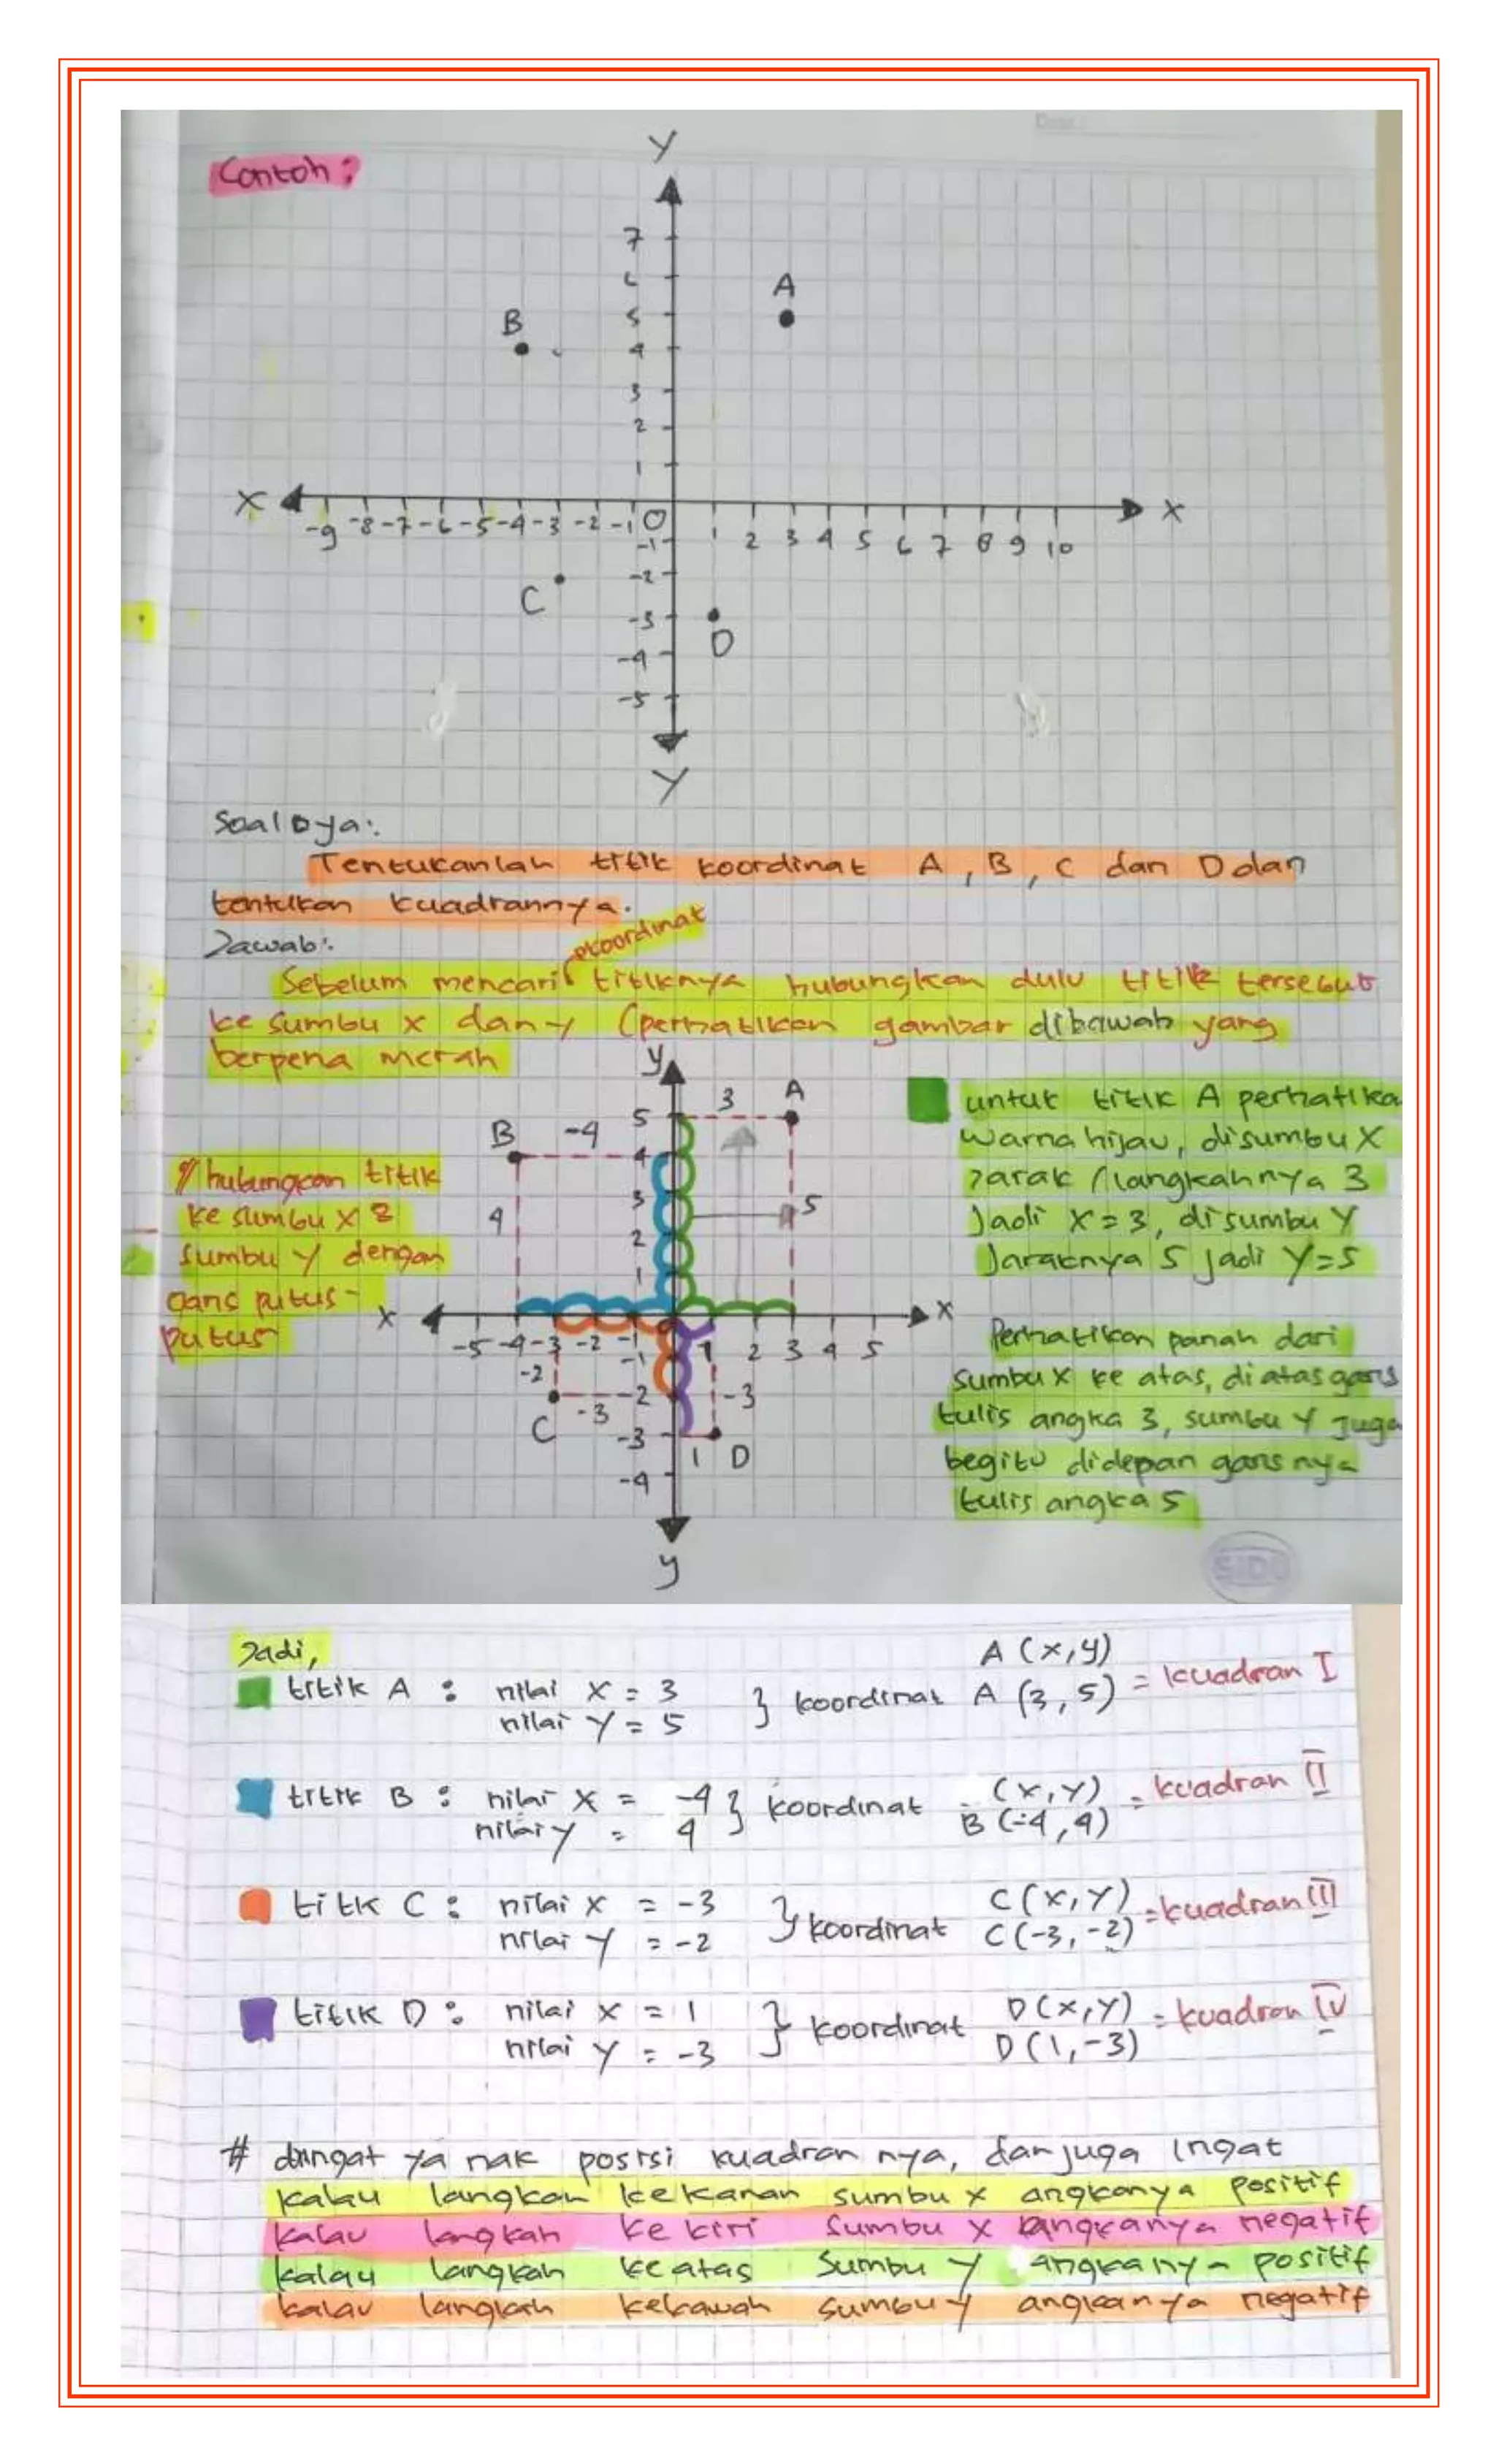 Contoh :
Y
7
6
A
5
B
4
3
2
1
X -9 -8 -7 -6 -5 -4 -3 -2 -1 O 1 2 3 4 5 6 7 8 9 10 X
-1
-2
C
-3
D
-4
-5
Y
Soalnya :
Tentukanlah titik koordinat A , B , C dan D dan
tentukan kuadrannya.
Jawab :
koordinat
Sebelum mencari titiknya hubungkan dulu titik tersebut
ke sumbu x dan y (perhatikan gambar dibawah yang
berpena merah
hubungkan titik
ke sumbu x &
sumbu y dengan
garis putus-
putus
y
5 3 A
B -4 4
4 3 5
2
1
x -5 -4 -3 -2 -1 0 1 2 3 4 5 x
-1
-2 -2 -3
C -3 -3 1 D
-4
y
untuk titik A perhatika
warna hijau, disumbu X
Jarak / langkahnya 3
Jadi X = 3, disumbu Y
Jaraknya 5 jadi Y = 5
Perhatikan panah dari
sumbu X ke atas, di atas garis
tulis angka 3, sumbu Y Juga
begitu didepan garis nya
tulis angka 5
SIDU
Jadi,
A (x,y)
titik A : nilai X = 3 } koordinat A (3,5) = kuadran I
nilai Y = 5
titik B : nilai X = -4 } koordinat (X,Y) = kuadran II
nilai y = 4 B (-4,4)
titk C : nilai X = -3 } koordinat C (X,Y) = kuadran III
nilai Y = -2 C (-3,-2)
titik D : nilai X = 1 } koordinat D (X,Y) = kuadran IV
nilai Y = -3 D (1,-3)
# diingat ya nak posisi kuadran nya, dan juga Ingat
kalau langkah kekanan sumbu x angkanya positif
kalau langkah ke kiri sumbu x angkanya negatif
kalau langkah ke atas sumbu y angkanya positif
kalau langkah kebawah sumbu y angkanya negatif